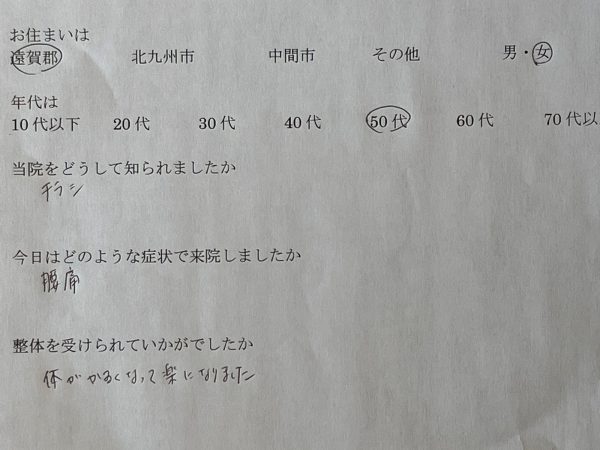 お住まいは
遠賀郡 北九州市 中間市 その他 男・女
年代は
10代以下 20代 30代 40代 50代 60代 70代以
当院をどうして知られましたか
チラシ
今日はどのような症状で来院しましたか
腰痛
整体を受けられていかがでしたか
体がかるくなって楽になりました